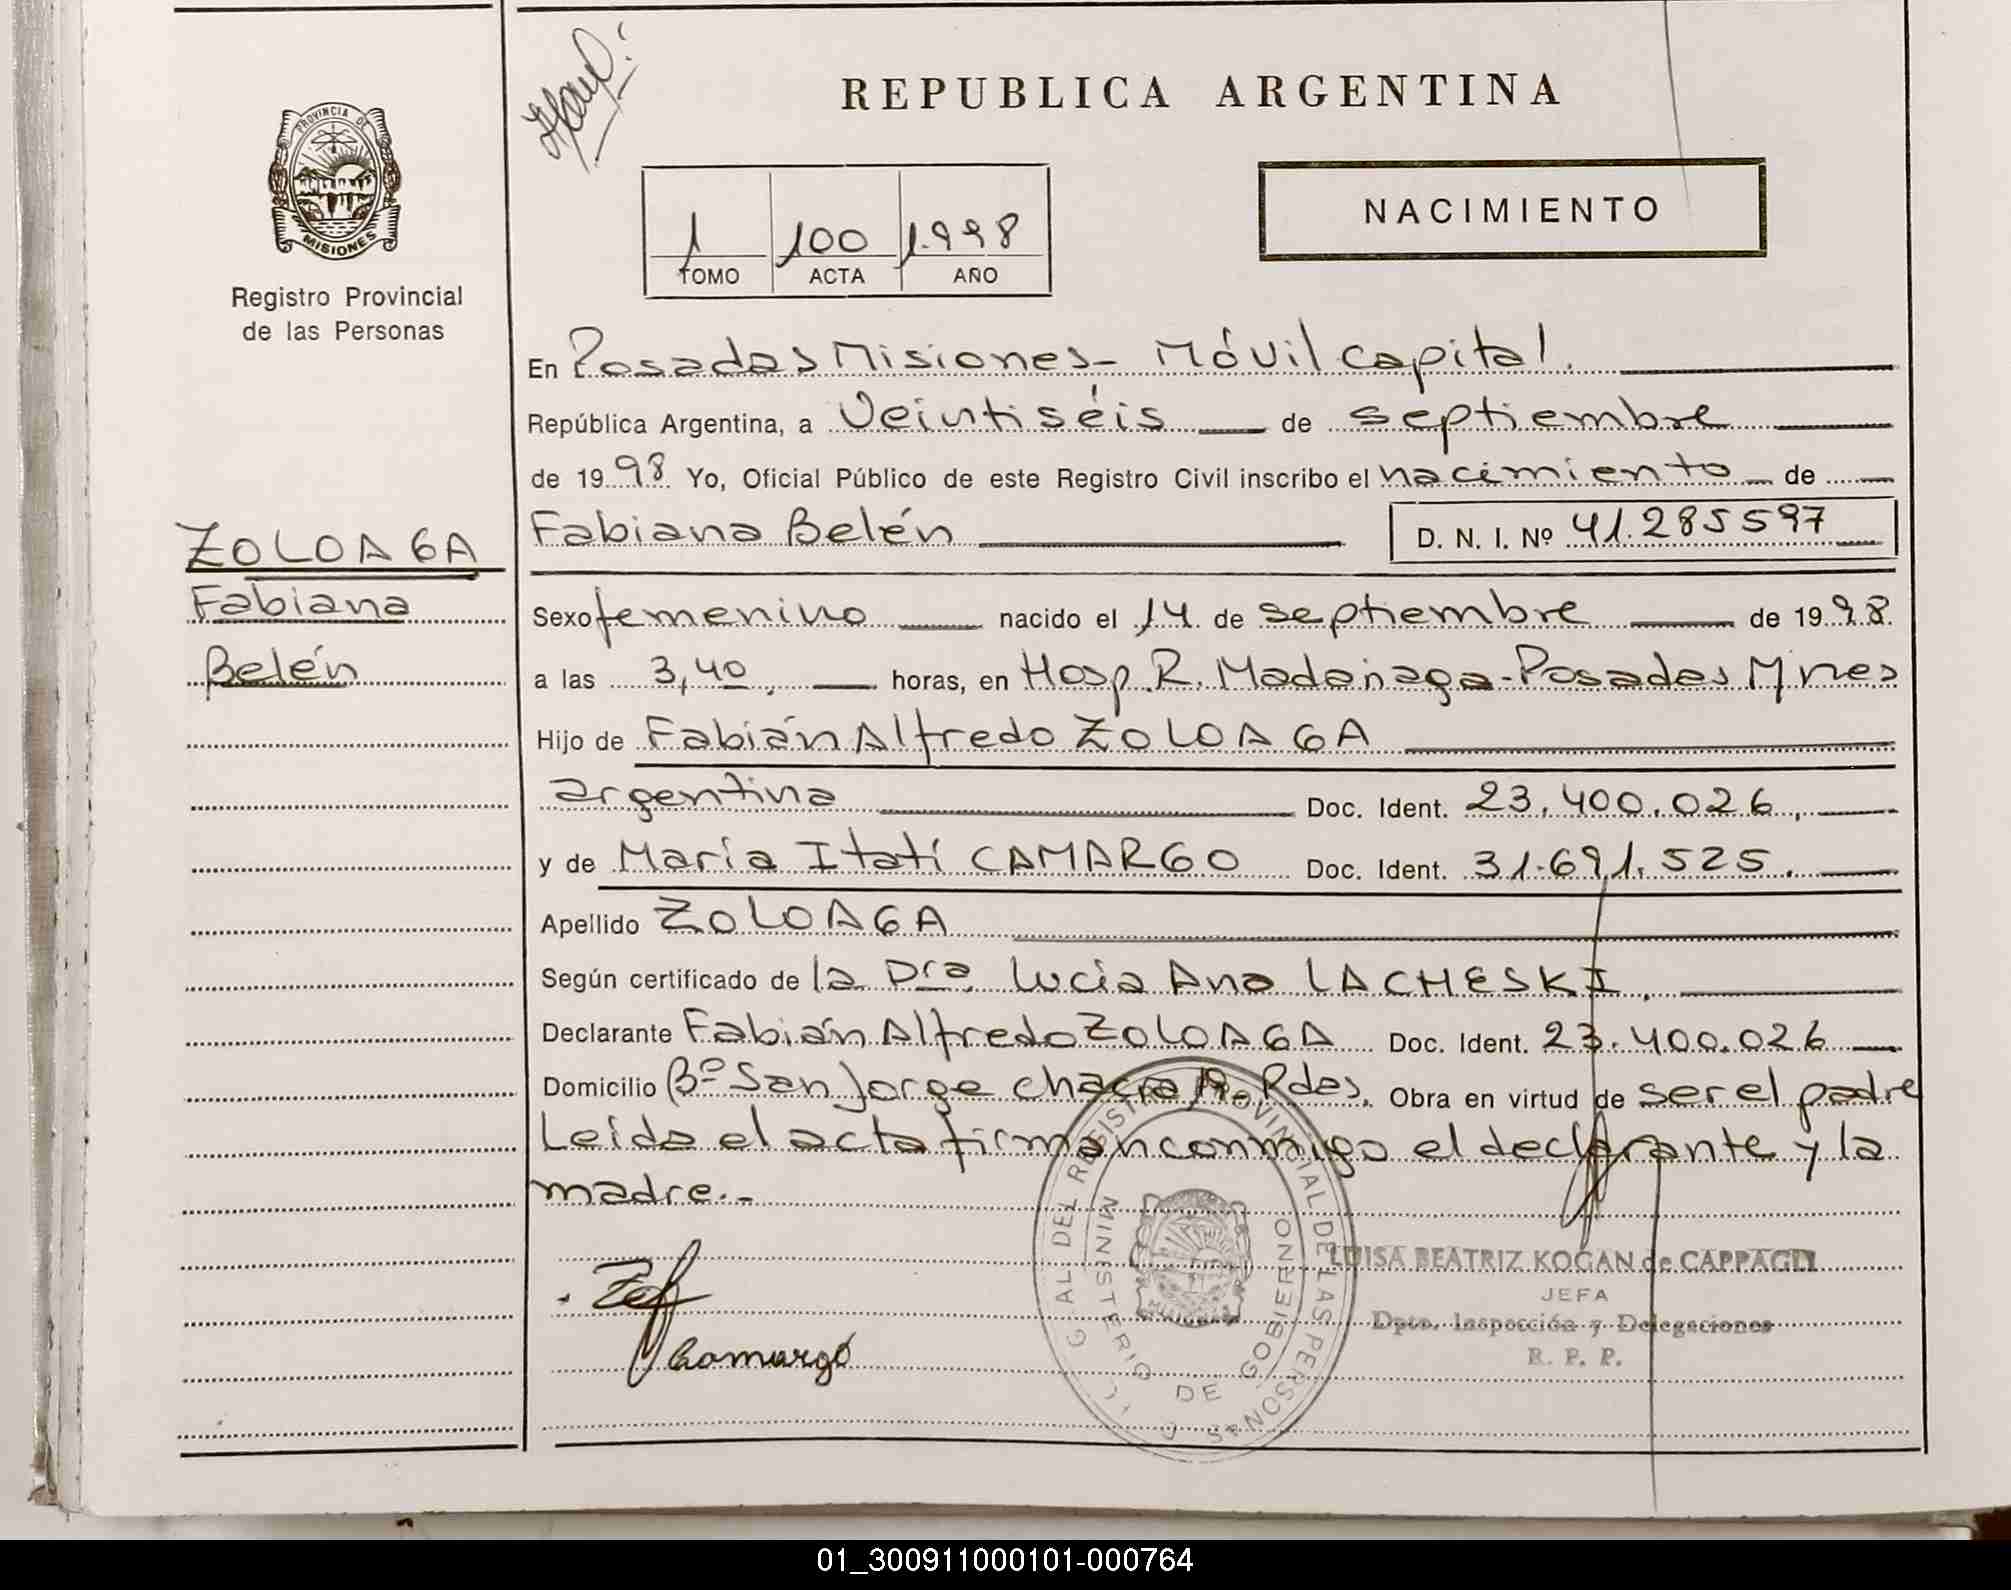 REPUBLICA ARGENTINA
PROVINCIA DE
MISIONES
Registro Provincial
de las Personas
1 100 1.998
TOMO ACTA AÑO
NACIMIENTO
En Posadas Misiones - Móvil capital.
República Argentina, a Veintiséis de septiembre
de 1998 Yo, Oficial Público de este Registro Civil inscribo el nacimiento de
Fabiana Belén D. N. I. Nº 41.285597
ZOLOAGA
Fabiana
Belén
Sexo femenino nacido el 14 de septiembre de 1998.
a las 3,40. horas, en Hosp. R. Madariaga - Posadas Mnes
Hijo de Fabián Alfredo ZOLOAGA
argentina Doc. Ident. 23.400.026.
y de María Itatí CAMARGO Doc. Ident. 31.691.525.
Apellido ZOLOAGA
Según certificado de la Dra. Lucia Ana LACHESKI.
Declarante Fabián Alfredo ZOLOAGA Doc. Ident. 23.400.026
Domicilio Bº San Jorge chacra 19. Pdas. Obra en virtud de ser el padre
Leida el acta firman conmigo el declarante y la
madre.-
DEL REGISTRO PROVINCIAL DE LAS PERSONAS
MINISTERIO DE GOBIERNO
LUISA BEATRIZ KOGAN de CAPPAGLI
JEFA
Dpto. Inspección y Delegaciones
R. P. P.
Camargo
01_300911000101-000764